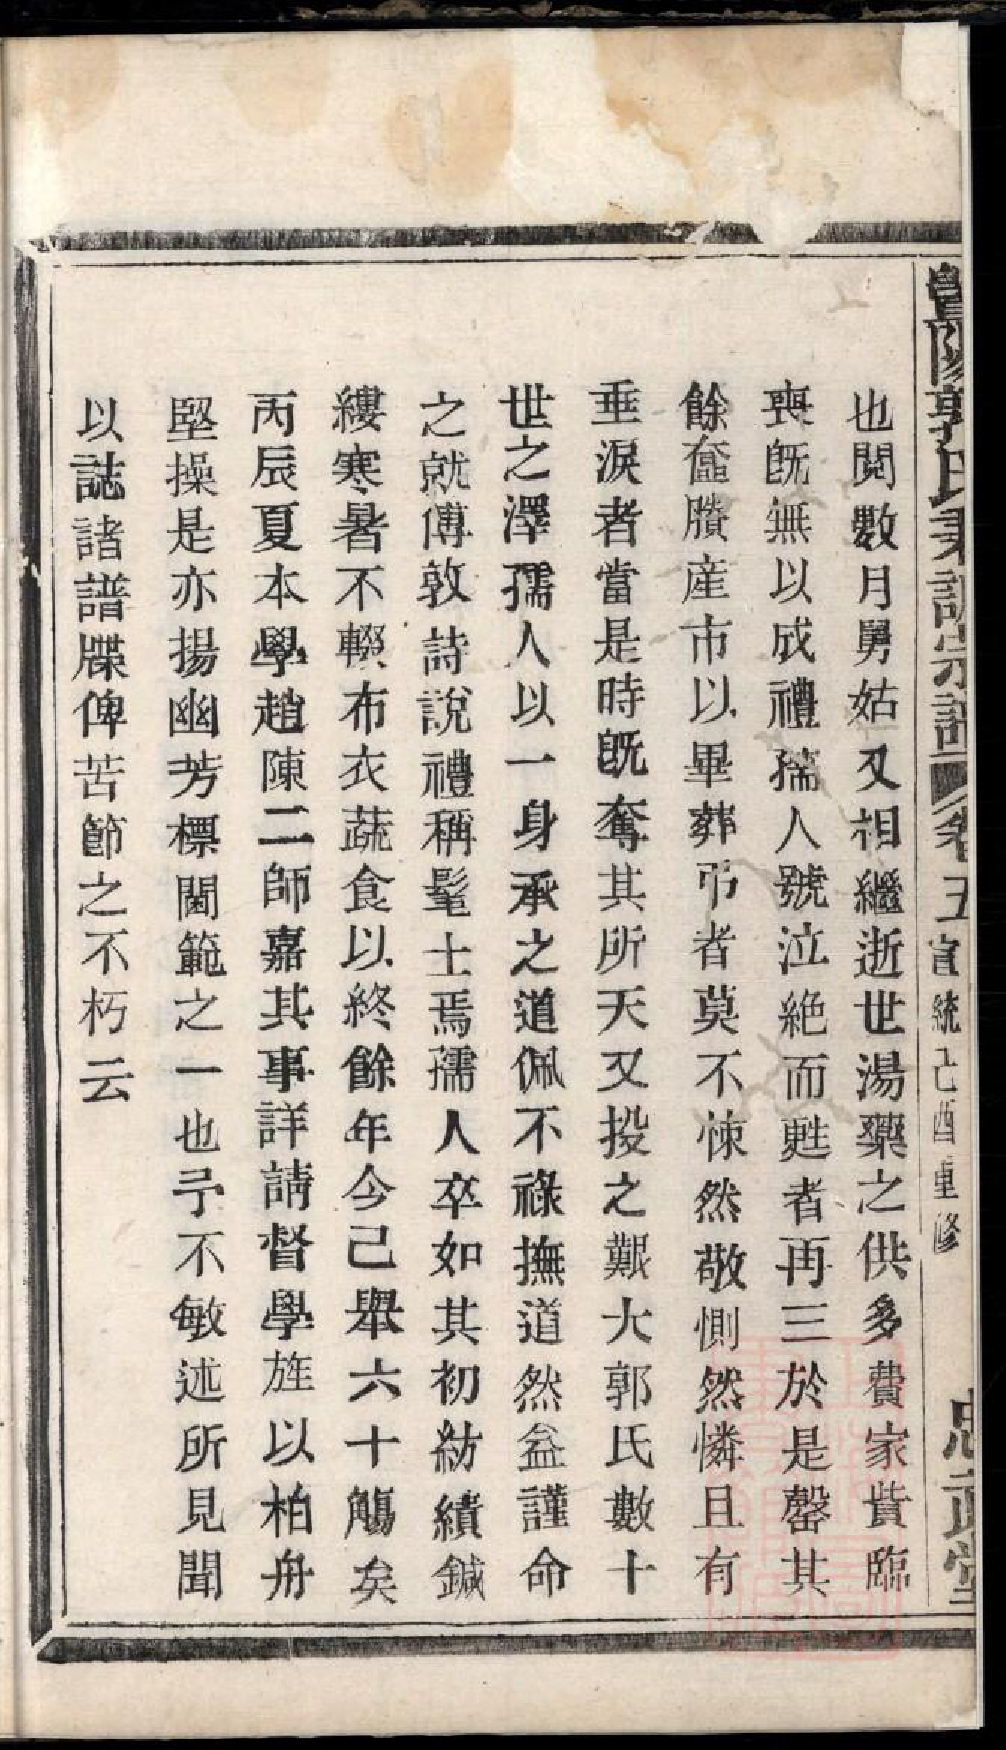 暨陽郭氏東譜宗譜 卷五 宣統己酉重修 忠武堂
也閱數月舅姑又相繼逝世湯藥之供多費家貲臨
喪旣無以成禮孺人號泣絶而甦者再三於是罄其
餘奩賸産市以畢葬弔者莫不悚然敬惻然憐且有
垂淚者當是時旣奪其所天又投之艱大郭氏數十
世之澤孺人以一身承之道佩不祿撫道然益謹命
之就傅敦詩說禮稱髦士焉孺人卒如其初紡績鍼
縷寒暑不輟布衣蔬食以終餘年今己舉六十觴矣
丙辰夏本學趙陳二師嘉其事詳請督學旌以柏舟
堅操是亦揚幽芳標閫範之一也予不敏述所見聞
以誌諸譜牒俾苦節之不朽云